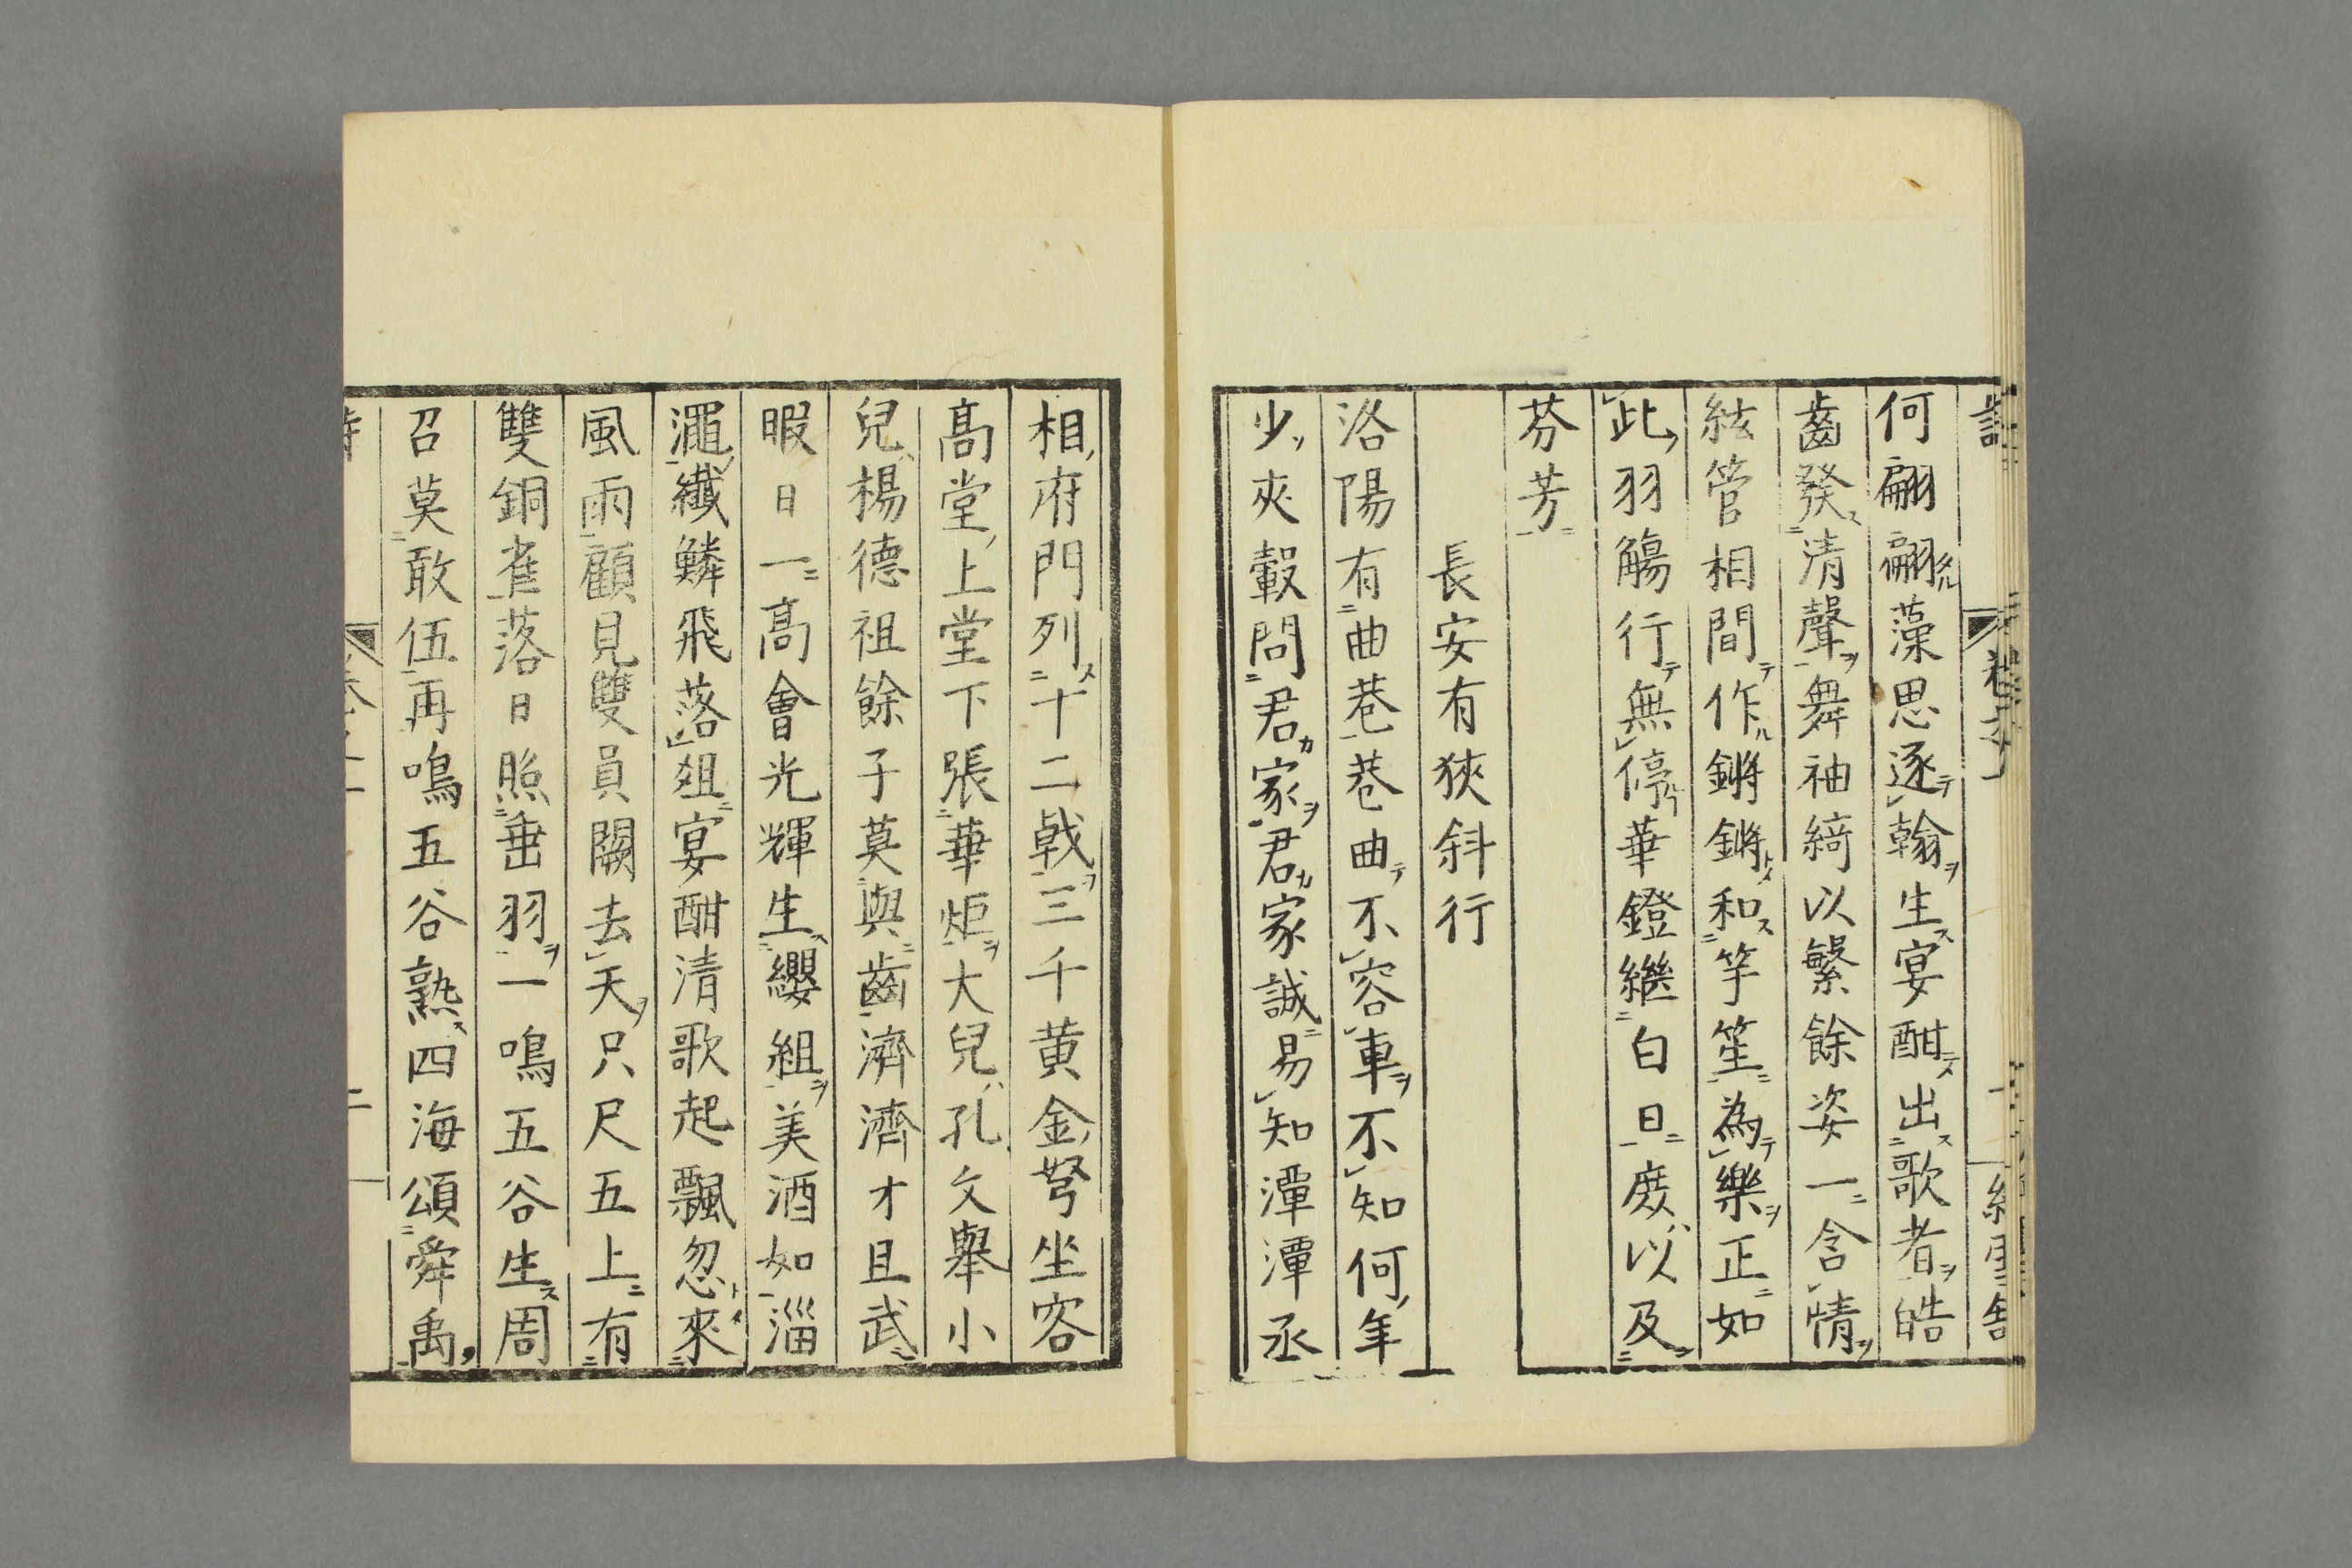 何翩翩藻思逐翰生宴酣出歌者皓
齒發清聲舞袖綺以繁餘姿一含情
絃管相間作鏘鏘和竽笙為樂正如
此羽觴行無停華鐙繼白日庻以及
芬芳
長安有狹斜行
洛陽有曲巷巷曲不容車不知何年
少夾轂問君家君家誠易知潭潭丞
相府門列十二戟三千黄金弩坐容
髙堂上堂下張華炬大兒孔文舉小
兒楊德祖餘子莫與齒濟濟才且武
暇日一髙會光輝生纓組美酒如淄
澠纖鱗飛落俎宴酣清歌起飄忽來
風雨顧見雙員闕去天只尺五上有
雙銅雀落日照垂羽一鳴五谷生周
召莫敢伍再鳴五谷熟四海頌舜禹